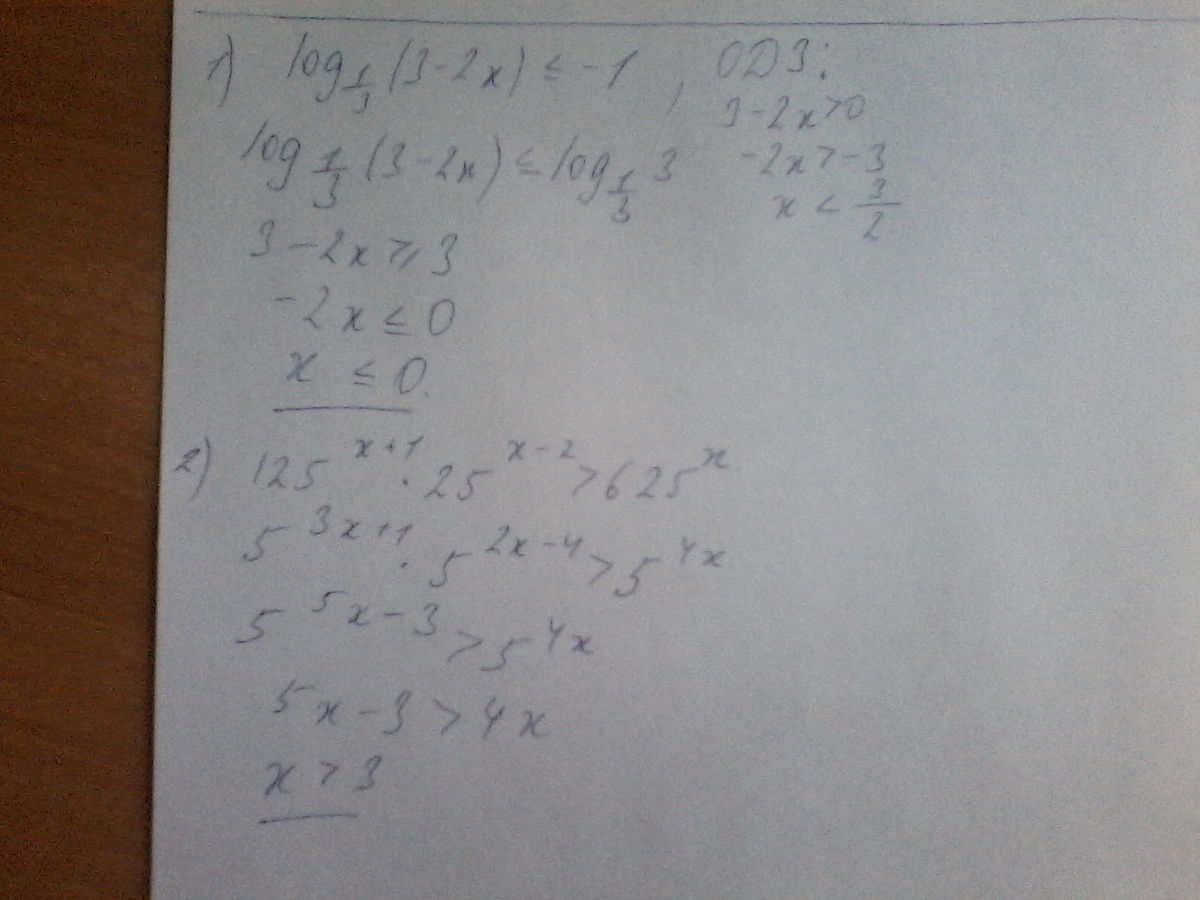 1) log_{1/3}(3-2x) ≤ -1 , ОДЗ:
3-2x>0
log_{1/3}(3-2x) ≤ log_{1/3}3
-2x>-3
x < 3/2
3-2x ≥ 3
-2x ≤ 0
x ≤ 0.
2) 125^{x+1} · 25^{x-2} > 625^{x}
5^{3x+1} · 5^{2x-4} > 5^{4x}
5^{5x-3} > 5^{4x}
5x-3 > 4x
x > 3